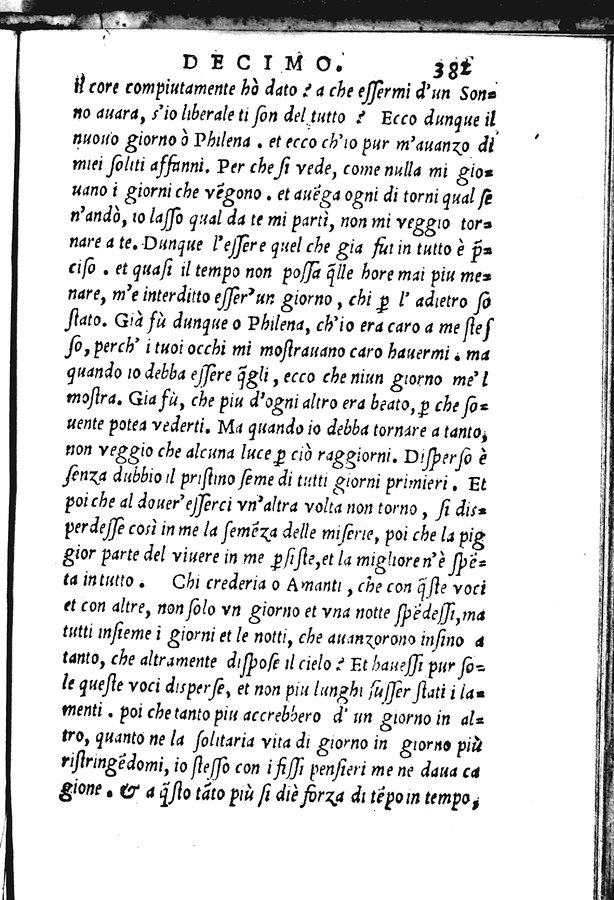 DECIMO. 382
il core compiutamente hò dato ? a che essermi d'un Son=
no auara, s'io liberale ti son del tutto ? Ecco dunque il
nuouo giorno ò Philena . et ecco ch'io pur m'auanzo di
miei soliti affanni. Per che si vede, come nulla mi gio=
uano i giorni che vẽgono . et auẽga ogni di torni qual se
n'andò, io lasso qual da te mi partì, non mi veggio tor=
nare a te. Dunque l'essere quel che gia fui in tutto è p̃=
ciso . et quasi il tempo non possa q̃lle hore mai piu me=
nare, m'e interditto esser'un giorno , chi ꝑ l' adietro so
stato. Già fù dunque o Philena, ch'io era caro a me stes
so, perch' i tuoi occhi mi mostrauano caro hauermi . ma
quando io debba essere q̃gli , ecco che niun giorno me'l
mostra. Gia fù, che piu d'ogni altro era beato, ꝑ che so=
uente potea vederti. Ma quando io debba tornare a tanto,
non veggio che alcuna luce ꝑ ciò raggiorni. Disperso è
senza dubbio il pristino seme di tutti giorni primieri . Et
poi che al douer'esserci vn'altra volta non torno , si dis=
perdesse così in me la semẽza delle miserie, poi che la pig
gior parte del viuere in me ꝑsiste, et la migliore n'è spẽ=
ta in tutto . Chi crederia o Amanti , che con q̃ste voci
et con altre, non solo vn giorno et vna notte spẽdessi, ma
tutti insieme i giorni et le notti, che auanzorono insino a
tanto, che altramente dispose il cielo ? Et hauessi pur so=
le queste voci disperse, et non piu lunghi fusser stati i la=
menti . poi che tanto piu accrebbero d' un giorno in al=
tro, quanto ne la solitaria vita di giorno in giorno più
ristringẽdomi, io stesso con i fissi pensieri me ne daua ca
gione . & a q̃sto tãto più si diè forza di tẽpo in tempo,